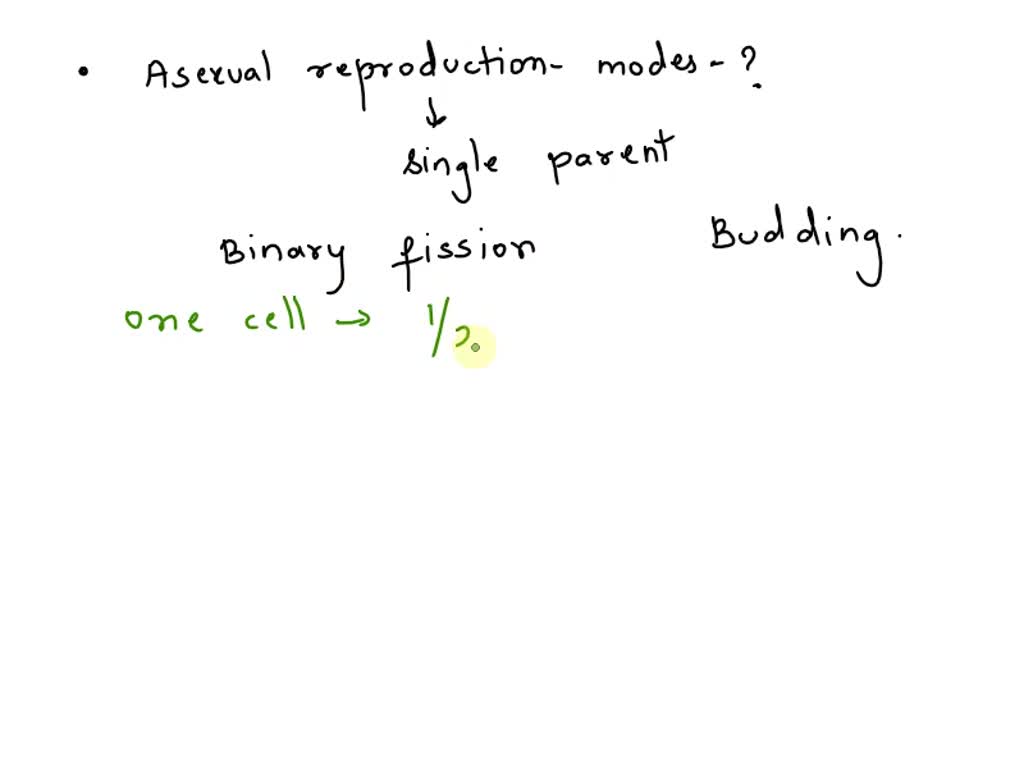 • Asexual reproduction- modes-?
↓
single parent
Binary fission Budding.
one cell → 1/2